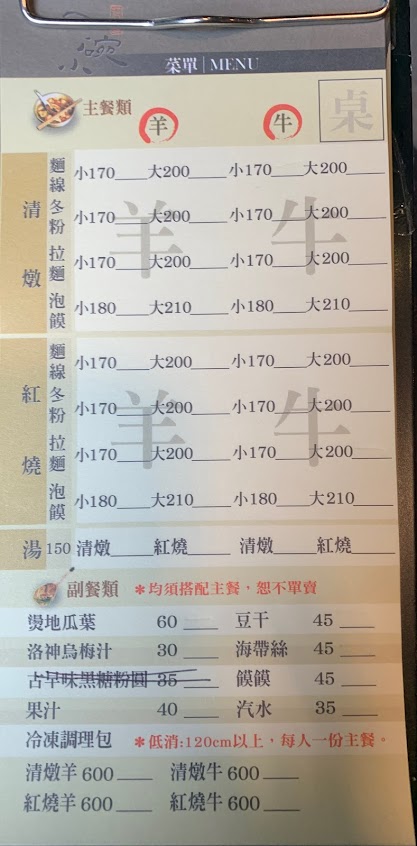 菜單 | MENU
主餐類 羊 牛 桌
清燉
麵線 小170____大200____ 小170____大200____
冬粉 小170____大200____ 小170____大200____
拉麵 小170____大200____ 小170____大200____
泡饃 小180____大210____ 小180____大210____
羊 牛
紅燒
麵線 小170____大200____ 小170____大200____
冬粉 小170____大200____ 小170____大200____
拉麵 小170____大200____ 小170____大200____
泡饃 小180____大210____ 小180____大210____
羊 牛
湯 150 清燉____紅燒____ 清燉____紅燒____
副餐類 *均須搭配主餐，恕不單賣
燙地瓜葉 60 ____ 豆干 45 ____
洛神烏梅汁 30 ____ 海帶絲 45 ____
古早味黑糖粉圓 35 ____ 饃饃 45 ____
果汁 40 ____ 汽水 35 ____
冷凍調理包 *低消:120cm以上，每人一份主餐。
清燉羊 600 ____ 清燉牛 600 ____
紅燒羊 600 ____ 紅燒牛 600 ____